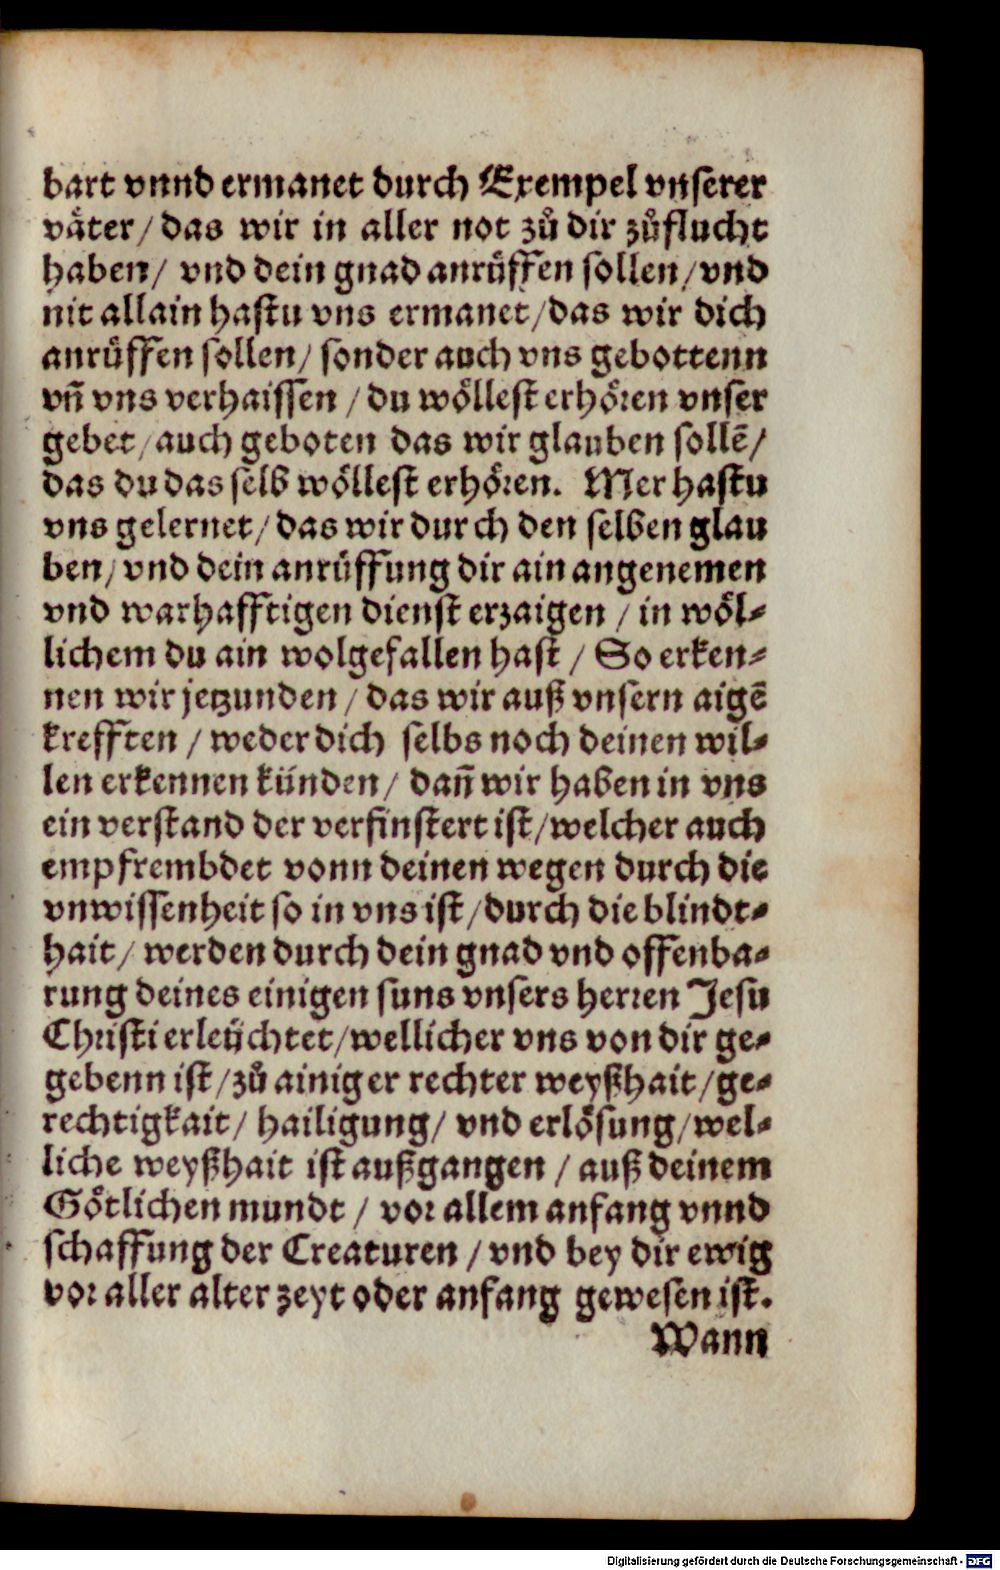 bart vnnd ermanet durch Exempel vnserer
vaͤter/ das wir in aller not zuͦ dir zuͦflucht
haben/ vnd dein gnad anruͤffen sollen/ vnd
nit allain hastu vns ermanet/ das wir dich
anruͤffen sollen/ sonder auch vns gebottenn
vn̄ vns verhaissen / du woͤllest erhoͤren vnser
gebet/ auch geboten das wir glauben sollē/
das du das selb woͤllest erhoͤren. Mer hastu
vns gelernet/ das wir durch den selben glau
ben/ vnd dein anruͤffung dir ain angenemen
vnd warhafftigen dienst erzaigen / in woͤl-
lichem du ain wolgefallen hast / So erken-
nen wir jetzunden / das wir auß vnsern aigē
krefften / weder dich selbs noch deinen wil-
len erkennen künden/ dañ wir haben in vns
ein verstand der verfinstert ist/ welcher auch
empfrembdet vonn deinen wegen durch die
vnwissenheit so in vns ist/ durch die blindt-
hait/ werden durch dein gnad vnd offenba-
rung deines einigen suns vnsers herren Jesu
Christi erleüchtet/ wellicher vns von dir ge-
gebenn ist/ zuͦ ainiger rechter weyßhait/ ge-
rechtigkait/ hailigung/ vnd erloͤsung/ wel-
liche weyßhait ist außgangen / auß deinem
Goͤtlichen mundt / vor allem anfang vnnd
schaffung der Creaturen / vnd bey dir ewig
vor aller alter zeyt oder anfang gewesen ist.
Wann
Digitalisierung gefördert durch die Deutsche Forschungsgemeinschaft - DFG